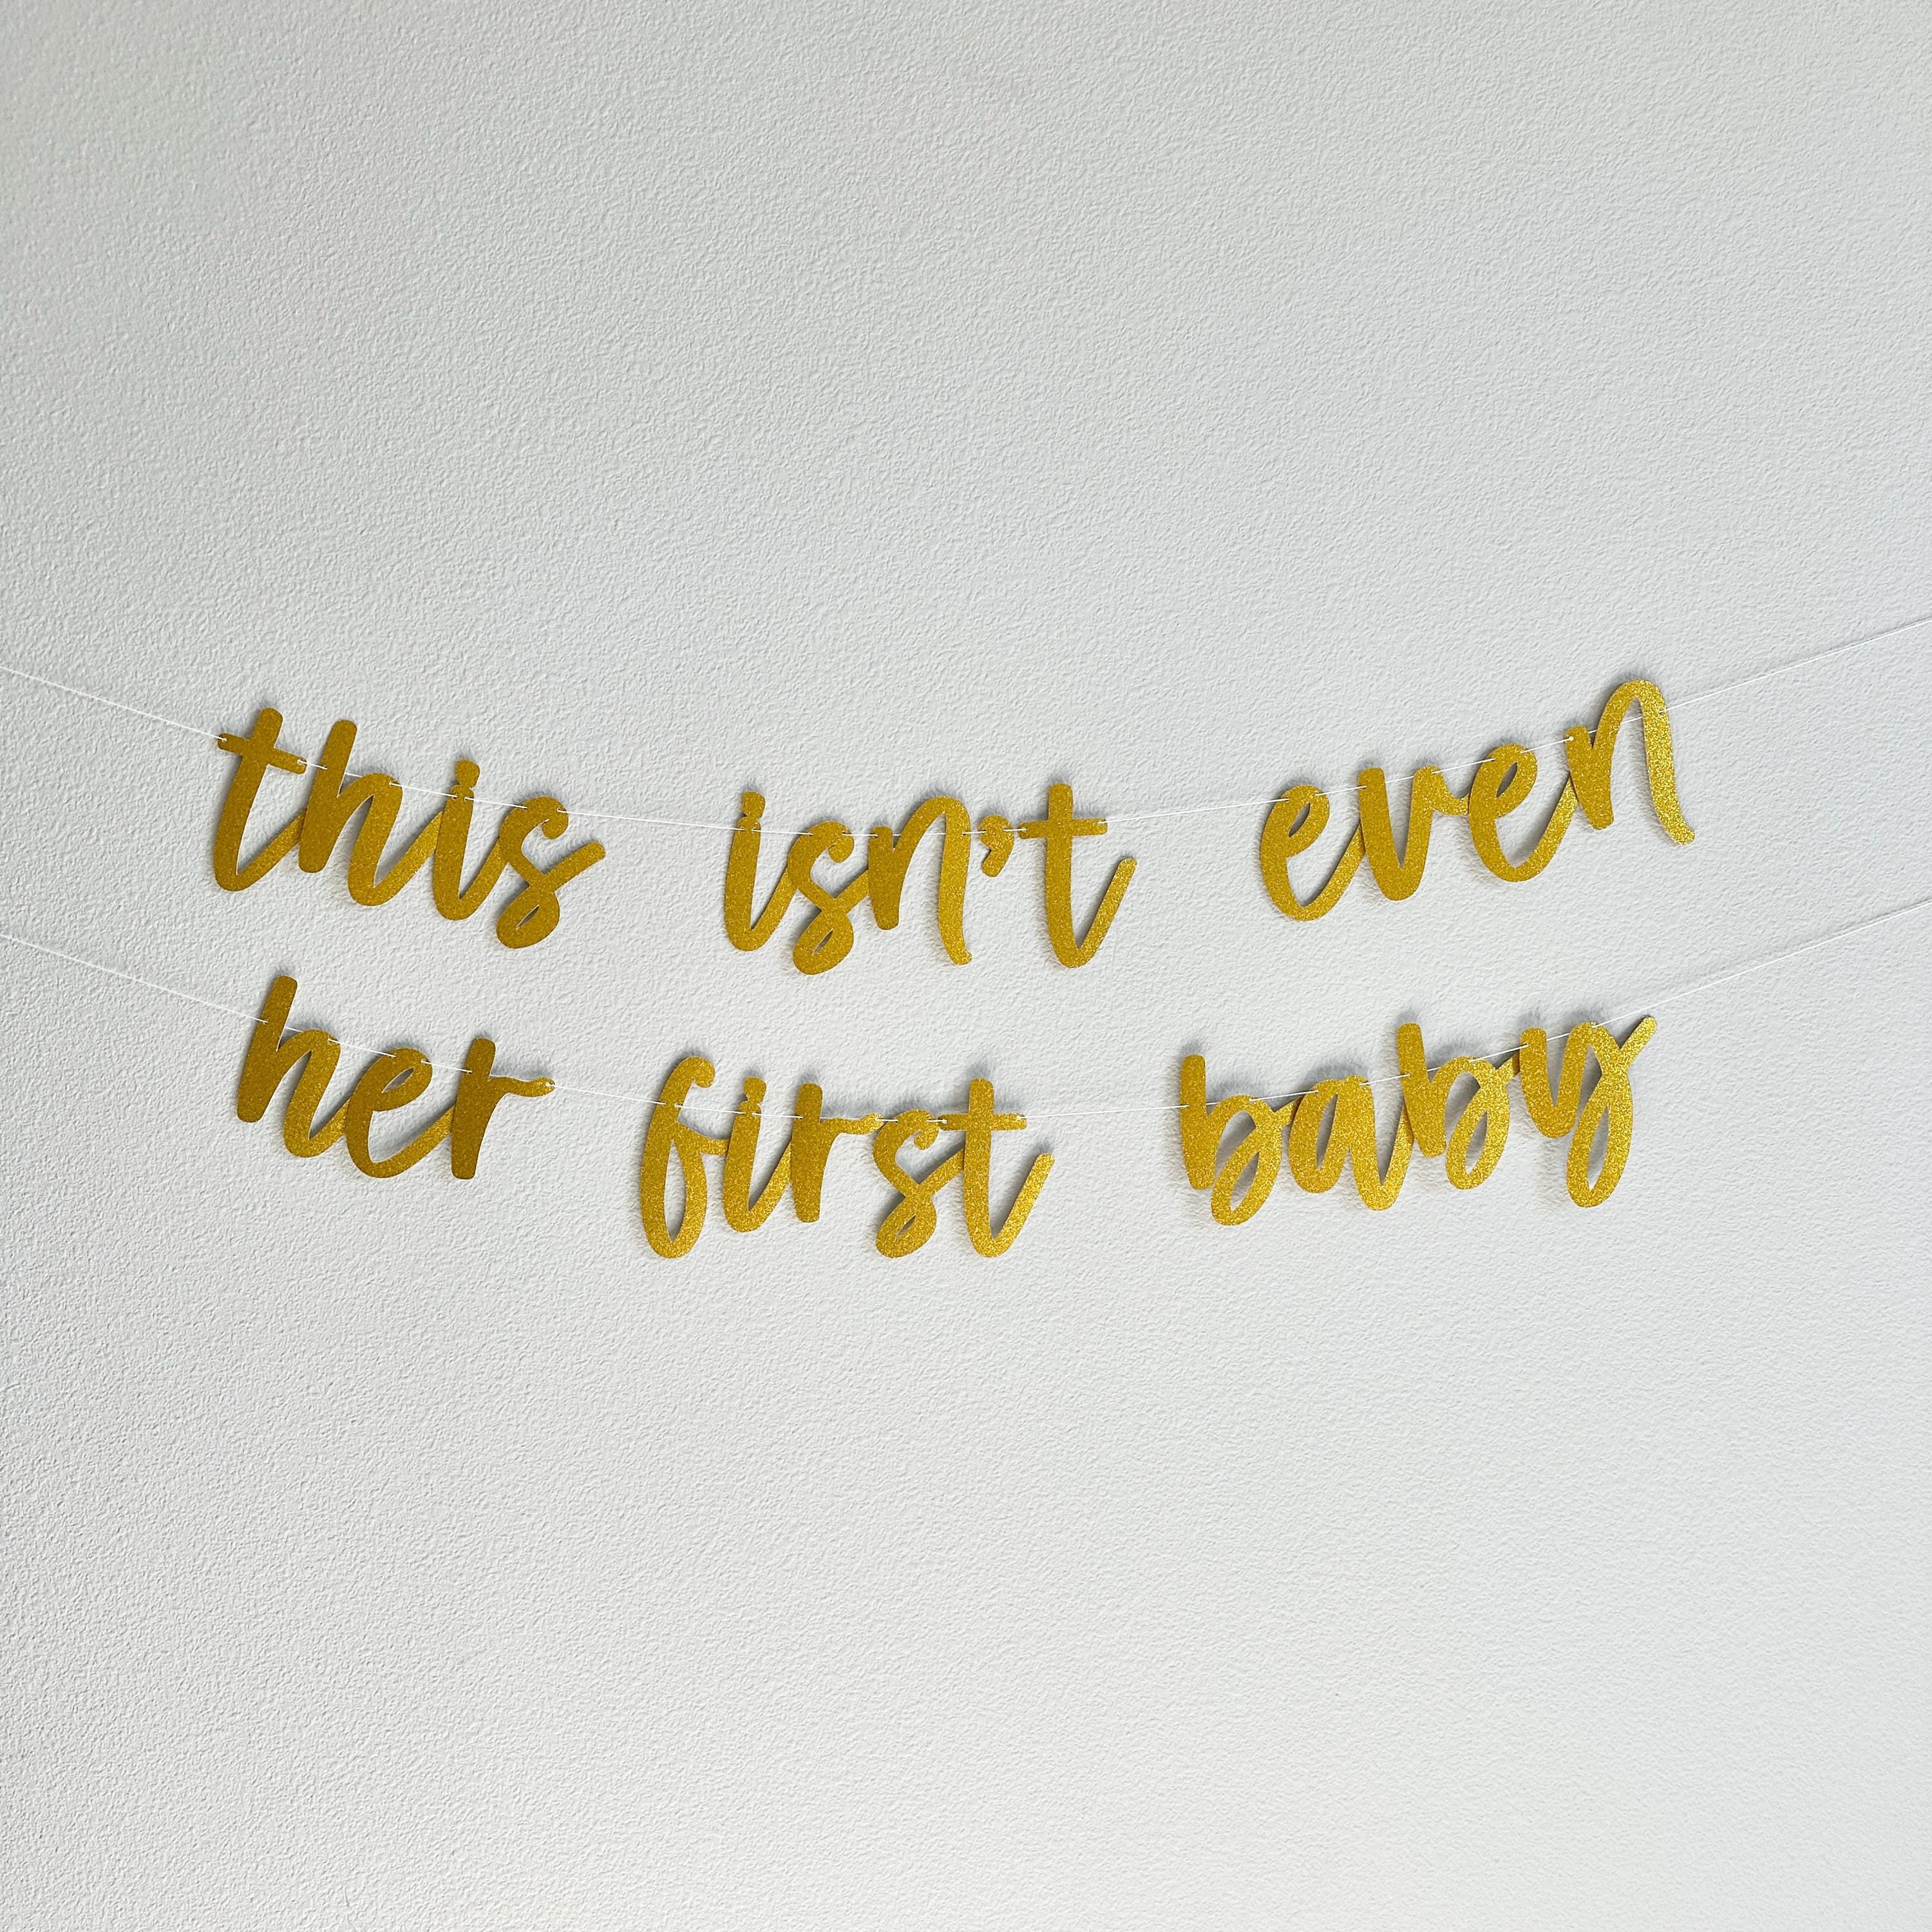 this isn't even
her first baby